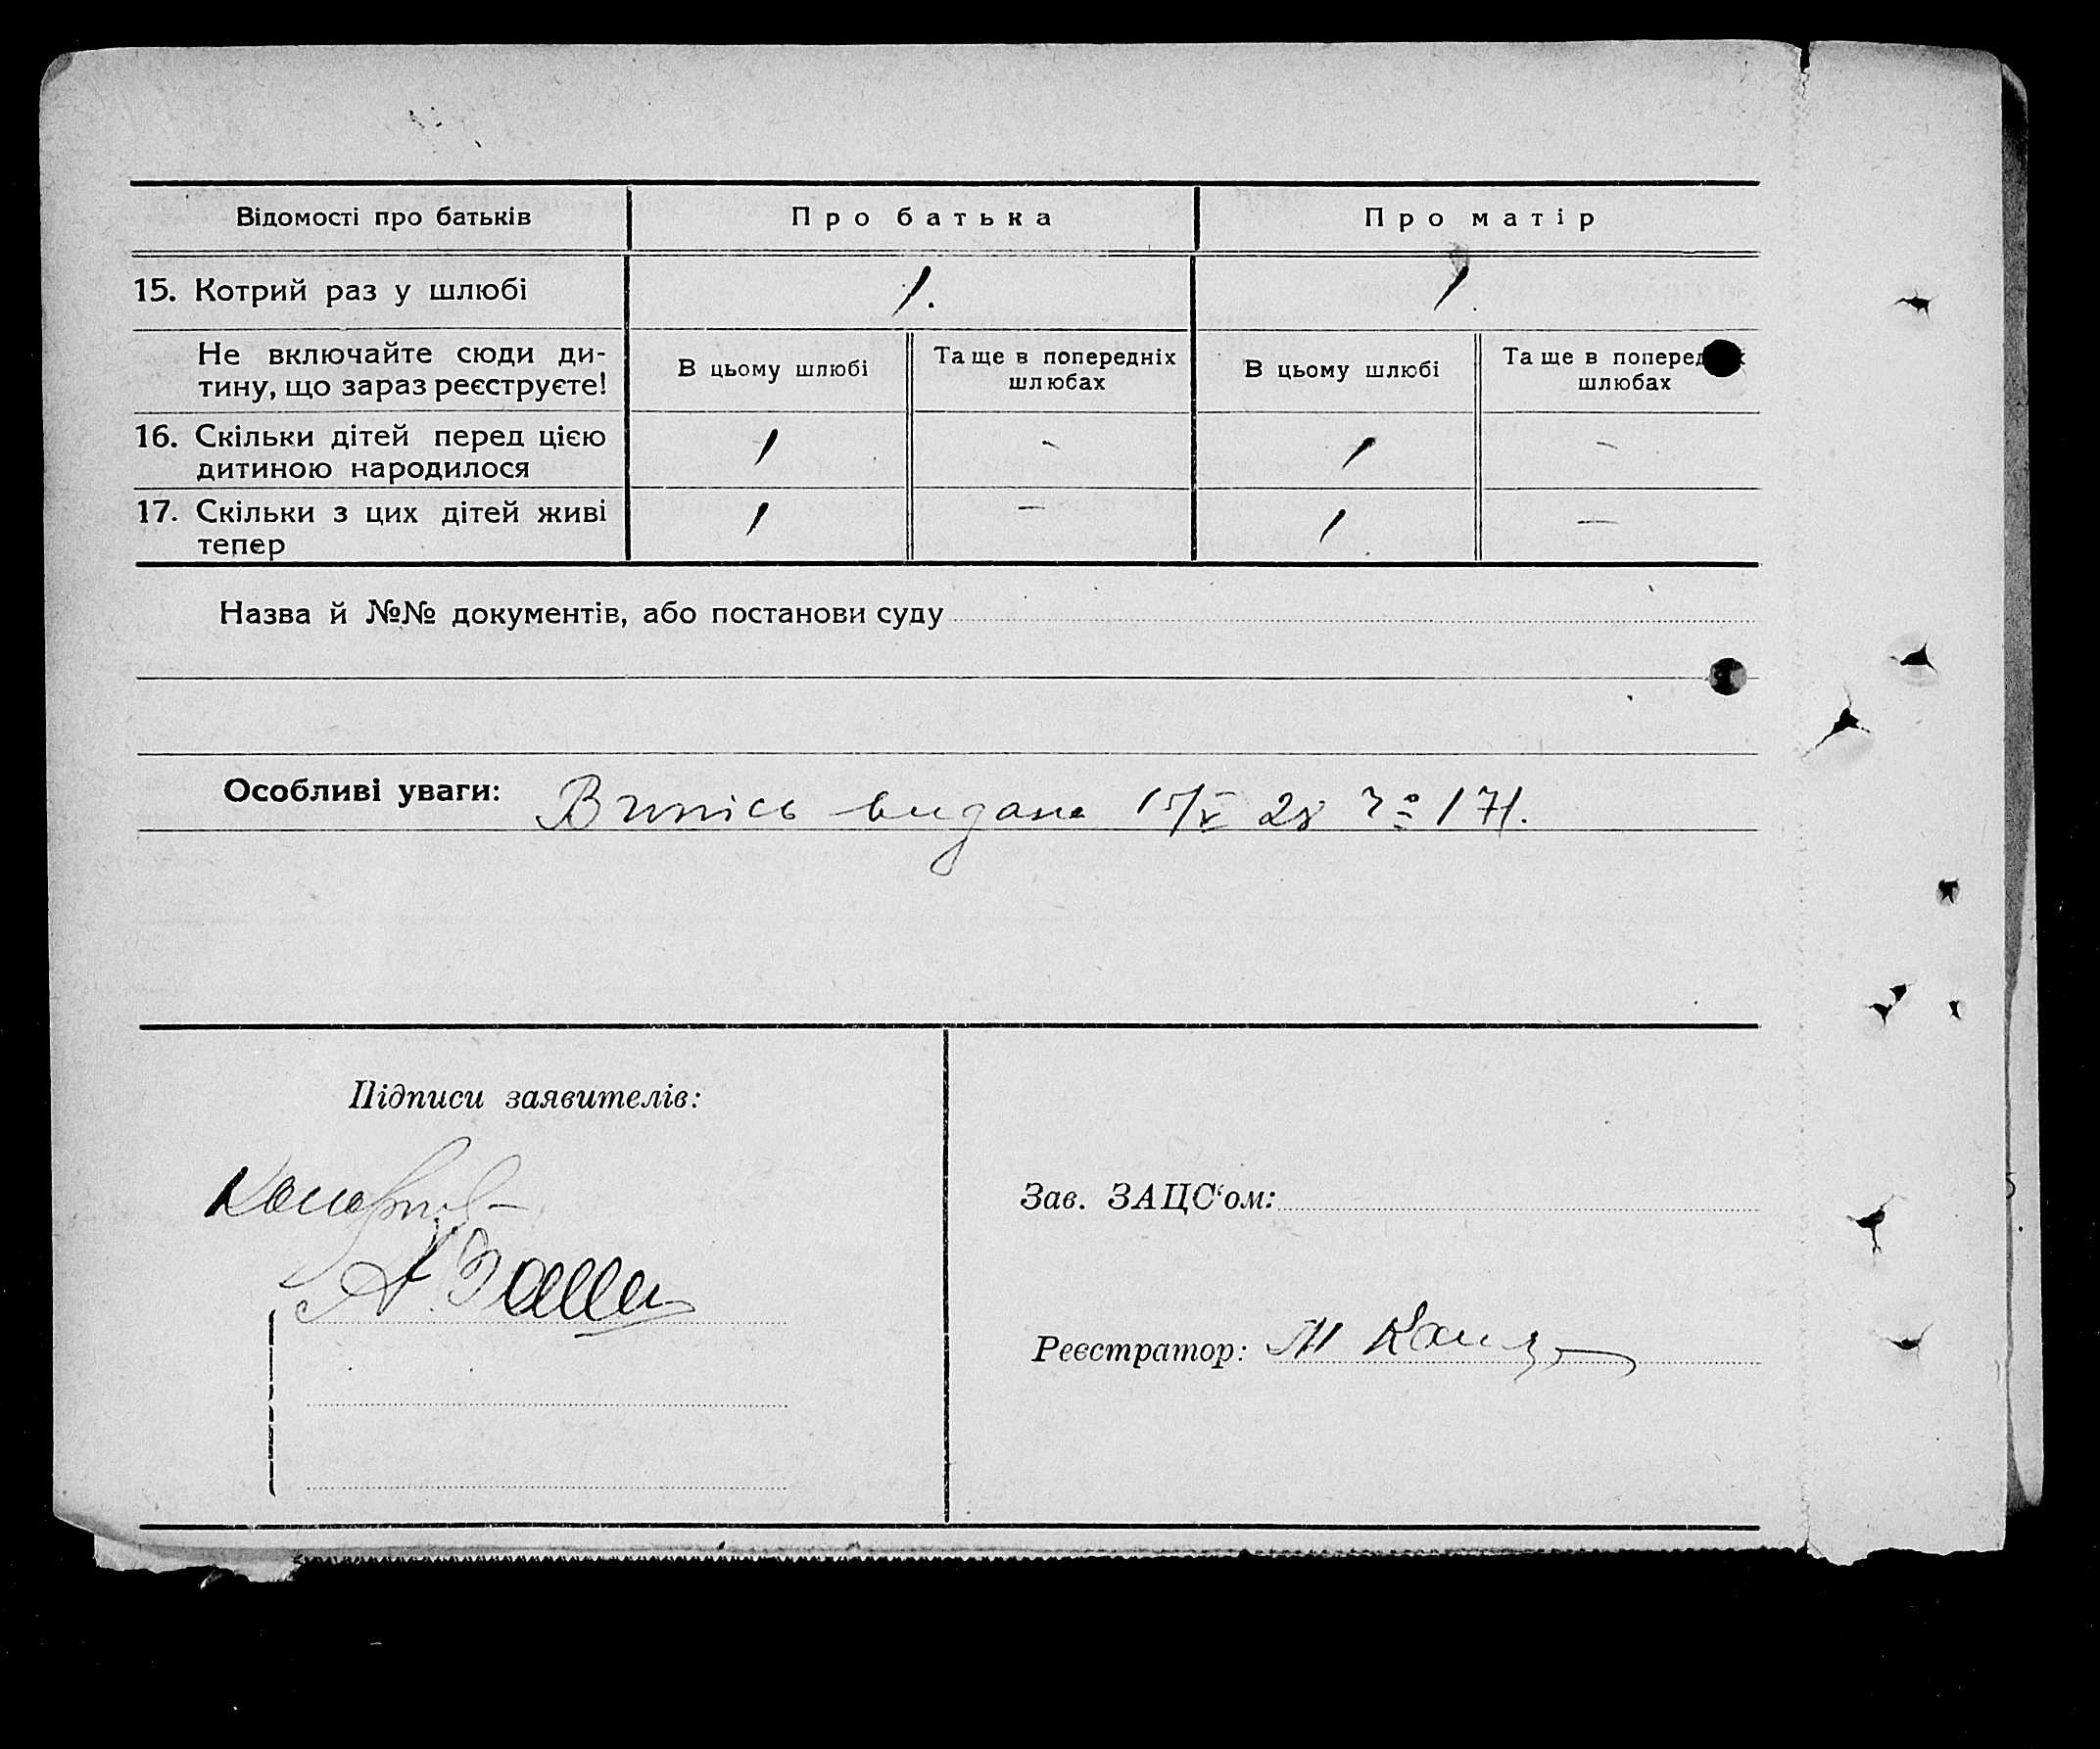 Відомості про батьків Про батька Про матір
15. Котрий раз у шлюбі 1. 1.
Не включайте сюди ди-
тину, що зараз реєструєте!
В цьому шлюбі
Та ще в попередніх
шлюбах
В цьому шлюбі
Та ще в поперед
шлюбах
16. Скільки дітей перед цією
дитиною народилося
1 - 1 -
17. Скільки з цих дітей живі
тепер
1 — 1. —
Назва й №№ документів, або постанови суду
Особливі уваги: Випісь видана 15/V 28 171.
Підписи заявителів:
Зав. ЗАЦС‘ом:
Реєстратор: М